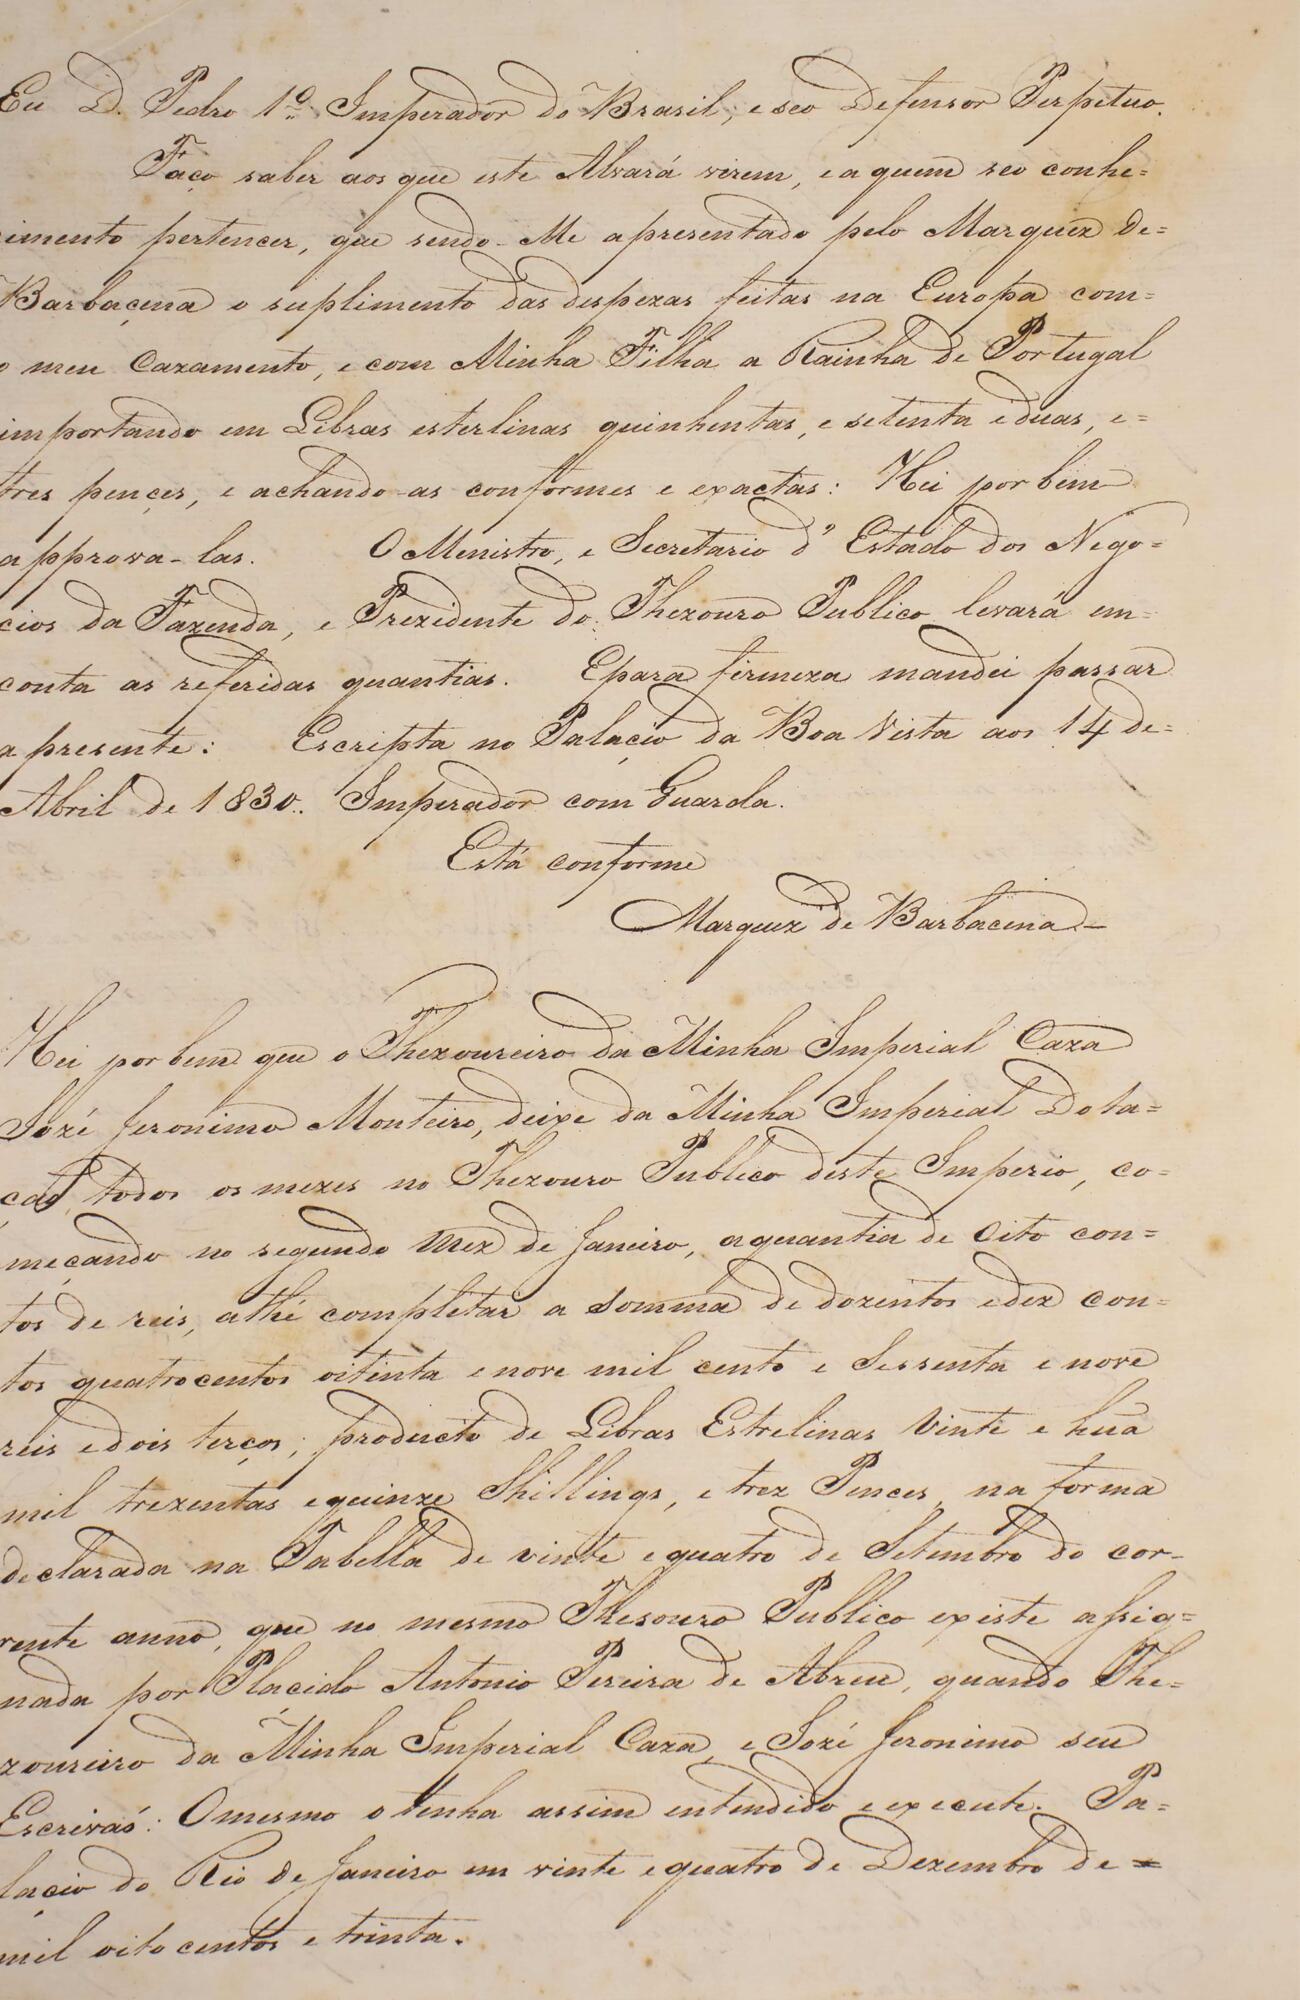 Eu D. Pedro 1º Imperador do Brasil, e seo Defensor Perpetuo.
Faço saber aos que este Alvará virem, e a quem seo conhe=
cimento pertencer, que sendo-Me apresentado pelo Marquez de=
Barbaçena o suplimento das despezas feitas na Europa com=
o meu Cazamento, e com Minha Filha a Rainha de Portugal
importando em Libras esterlinas quinhentas, e setenta e duas, e=
tres pençes, e achando-as conformes e exactas: Hei por bem
approva-las. O Menistro, e Secretario d'' Estado dos Nego=
cios da Fazenda, e Prezidente do Thezouro Publico levará em=
conta as referidas quantias. E para firmeza mandei passar
a presente: Escripta no Palaçio da Boa Vista aos 14 de=
Abril de 1830.. Imperador com Guarda.
Está conforme
Marquez de Barbacena
Hei por bem que o Thezoureiro da Minha Imperial Caza
Jozé Jeronimo Monteiro, deixe da Minha Imperial Dota=
çaõ, todos os mezes no Thezouro Publico deste Imperio, co=
meçando no segundo mez de Janeiro, a quantia de Oito con=
tos de reis, athé completar a somma de dozentos e dez con=
tos quatrocentos oitinta e nove mil cento e Sessenta e nove
reis e dois terços; producto de Libras Estrelinas Vinte e huã
mil trezentas e quinze Shillings, e trez Pences, na forma
declarada na Tabella de vinte e quatro de Setembro do cor=
rente anno, que no mesmo Thesouro Publico existe assig=
nada por Placido Antonio Pereira de Abreu, quando The=
zoureiro da Minha Imperial Caza, e Jozé Jeronimo seu
Escrivaó: O mesmo o tenha assim entendido e execute. Pa=
laçio do Rio de Janeiro em vinte e quatro de Dezembro de=
mil oito centos e trinta.